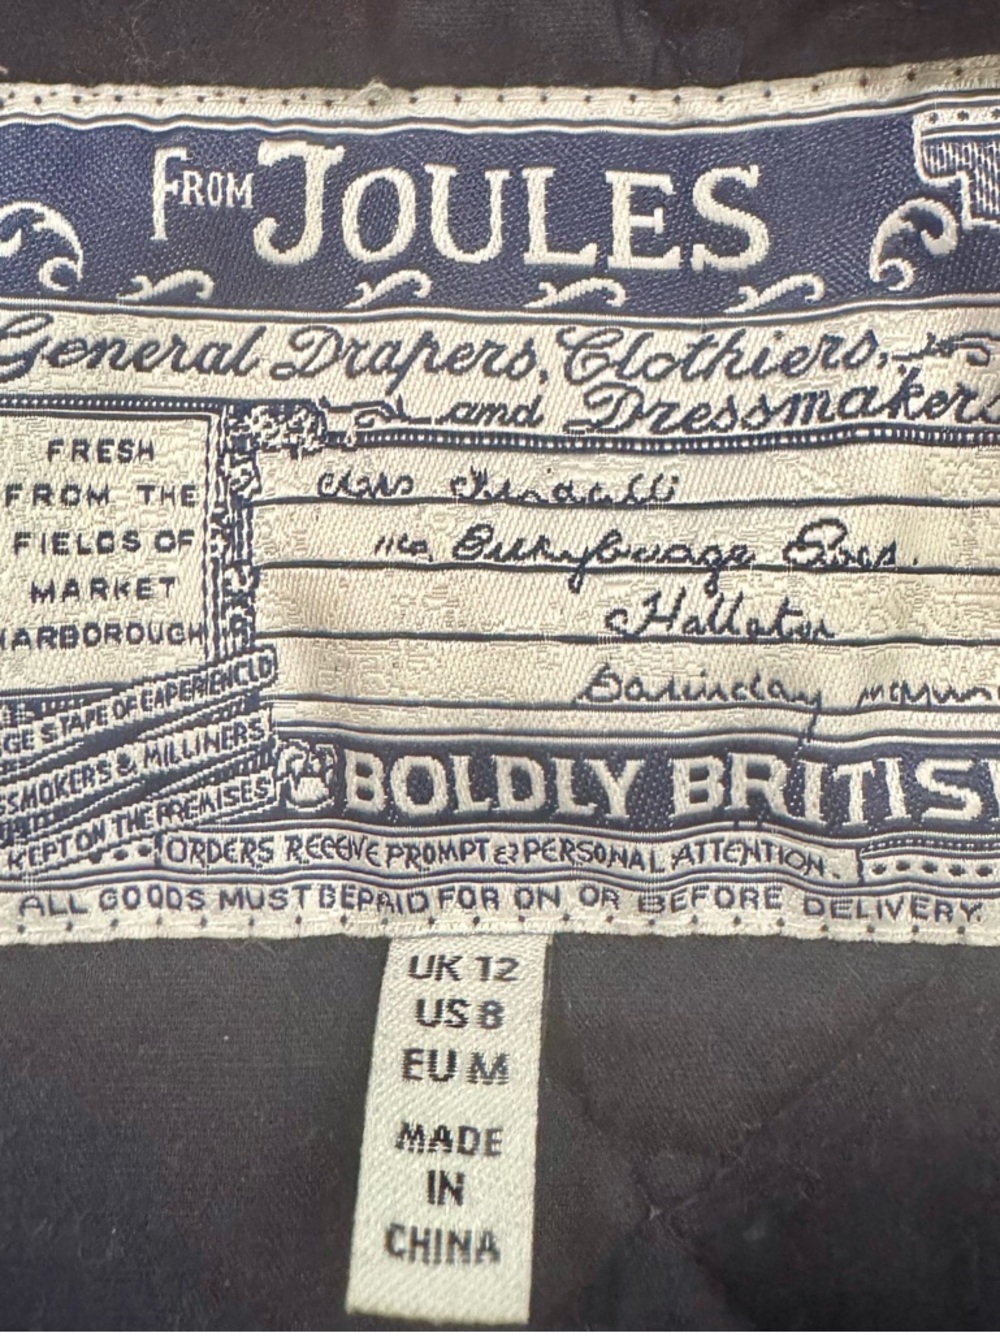 FROM JOULES
General Drapers, Clothiers,
and Dressmakers
FRESH
FROM THE
FIELDS OF
MARKET
HARBOROUGH
TAPE OF
SMOKERS & MILLINERS
KEPT ON THE PREMISES
Hallaton
BOLDLY BRITISH
ORDERS RECEIVE PROMPT & PERSONAL ATTENTION.
ALL GOODS MUST BE PAID FOR ON OR BEFORE DELIVERY.
UK 12
US 8
EU M
MADE
IN
CHINA